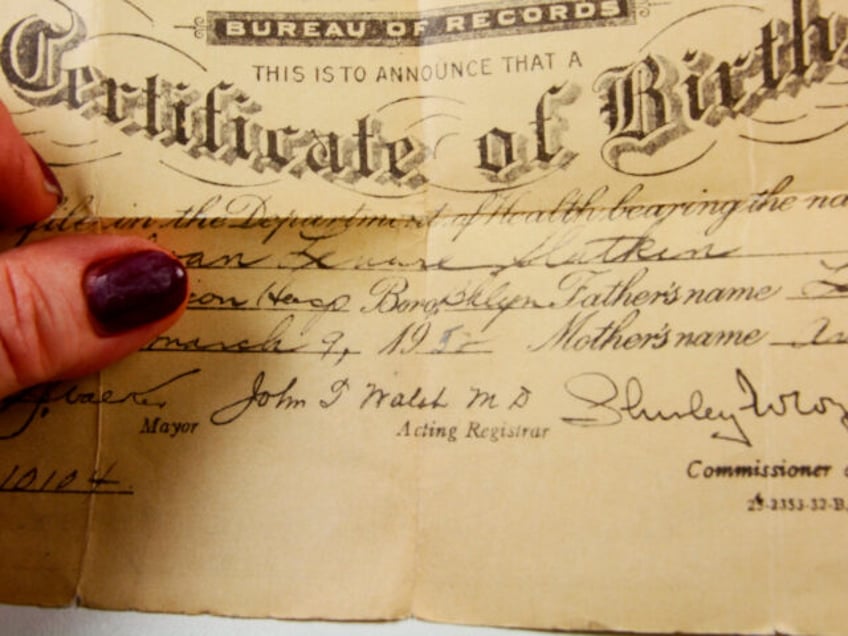 BUREAU OF RECORDS
THIS IS TO ANNOUNCE THAT A
Certificate of Birth
file in the Department of Health bearing the na
Slatkin
Hosp Boro Bklyn Father's name
March 9, 19 Mother's name
John T Walsh M D Shirley
Mayor Acting Registrar
Commissioner
10104
25-2353-32-B